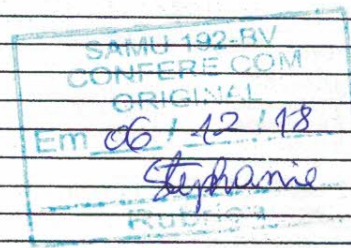 SAMU 192-BV
CONFERE COM
ORIGINAL
Em 06 / 12 / 18
Stephanie
Rubrica